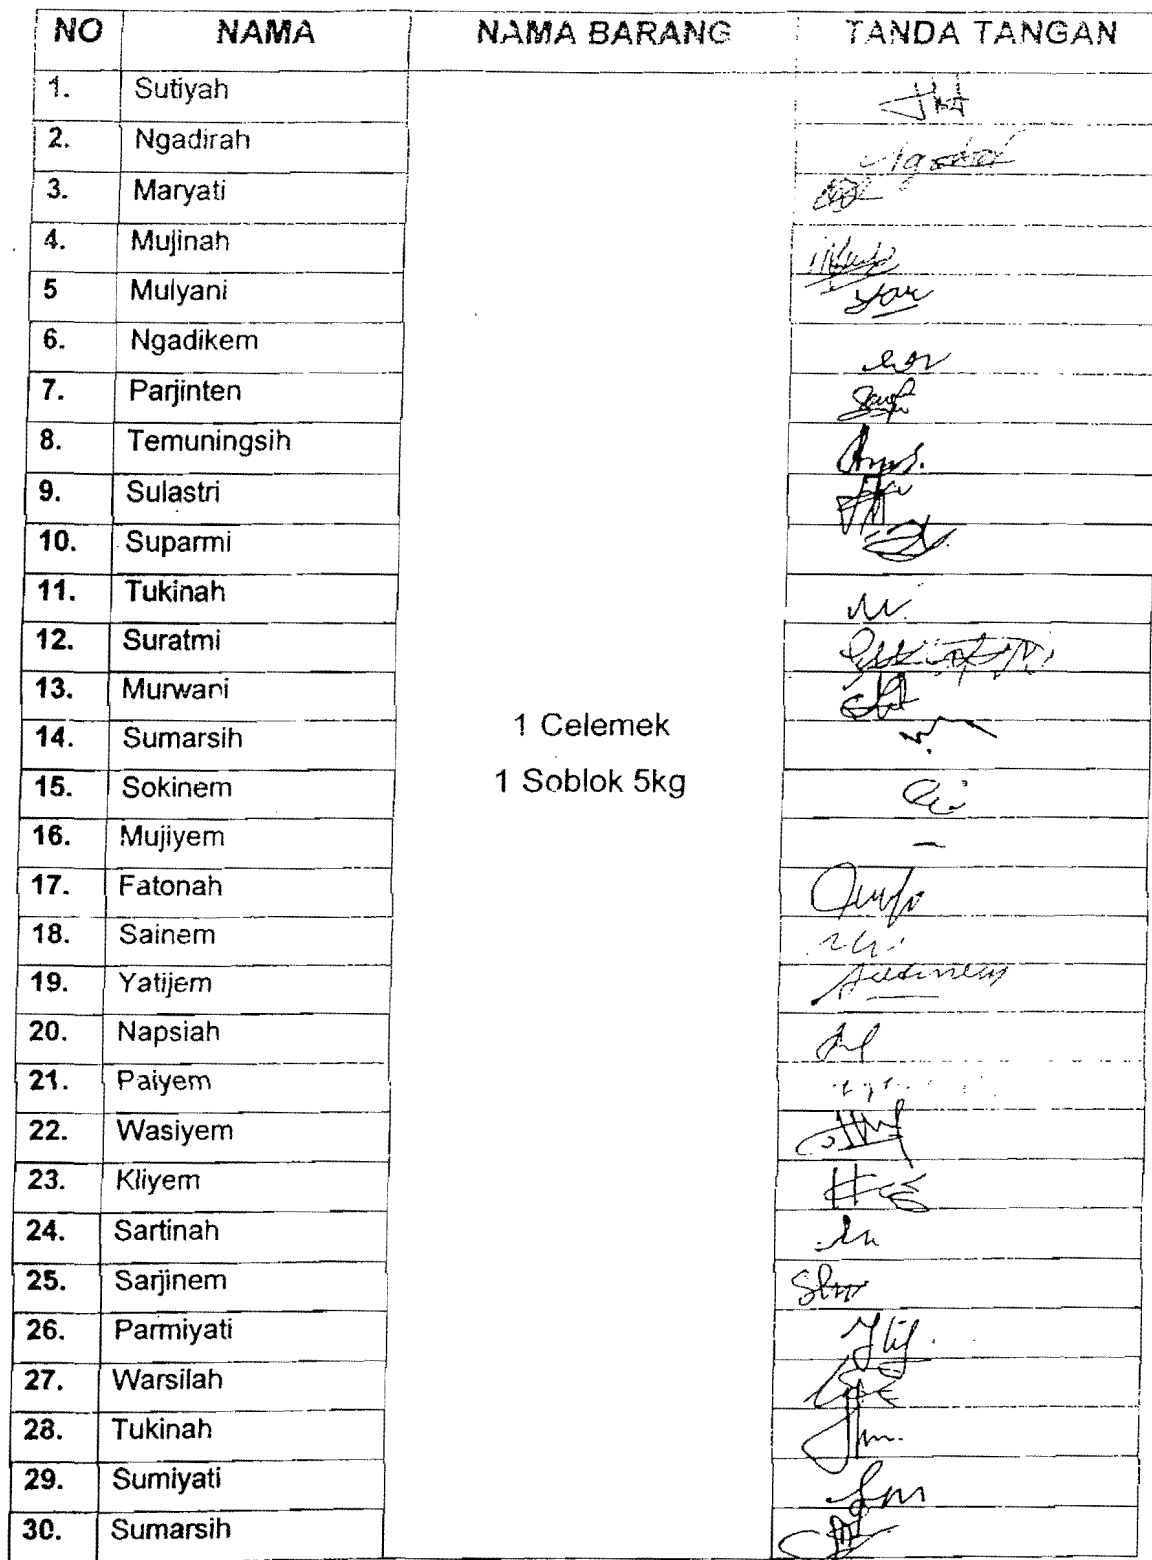 NO NAMA NAMA BARANG TANDA TANGAN
1. Sutiyah
2. Ngadirah
3. Maryati
4. Mujinah
5 Mulyani
6. Ngadikem
7. Parjinten
8. Temuningsih
9. Sulastri
10. Suparmi
11. Tukinah
12. Suratmi
13. Murwani
14. Sumarsih
15. Sokinem
16. Mujiyem
17. Fatonah
18. Sainem
19. Yatijem
20. Napsiah
21. Paiyem
22. Wasiyem
23. Kliyem
24. Sartinah
25. Sarjinem
26. Parmiyati
27. Warsilah
28. Tukinah
29. Sumiyati
30. Sumarsih
1 Celemek
1 Soblok 5kg